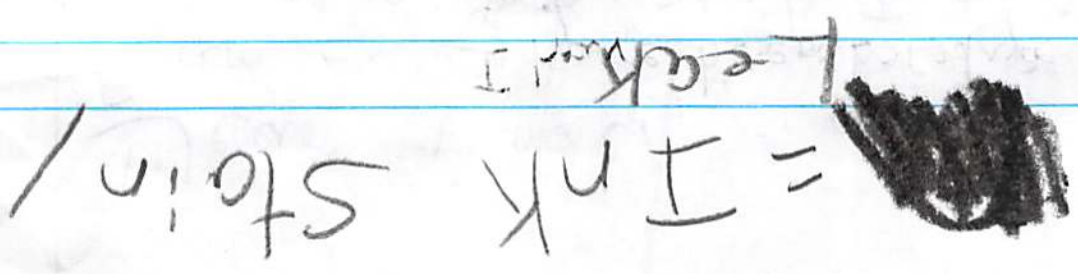 = Ink Stain/
Leak